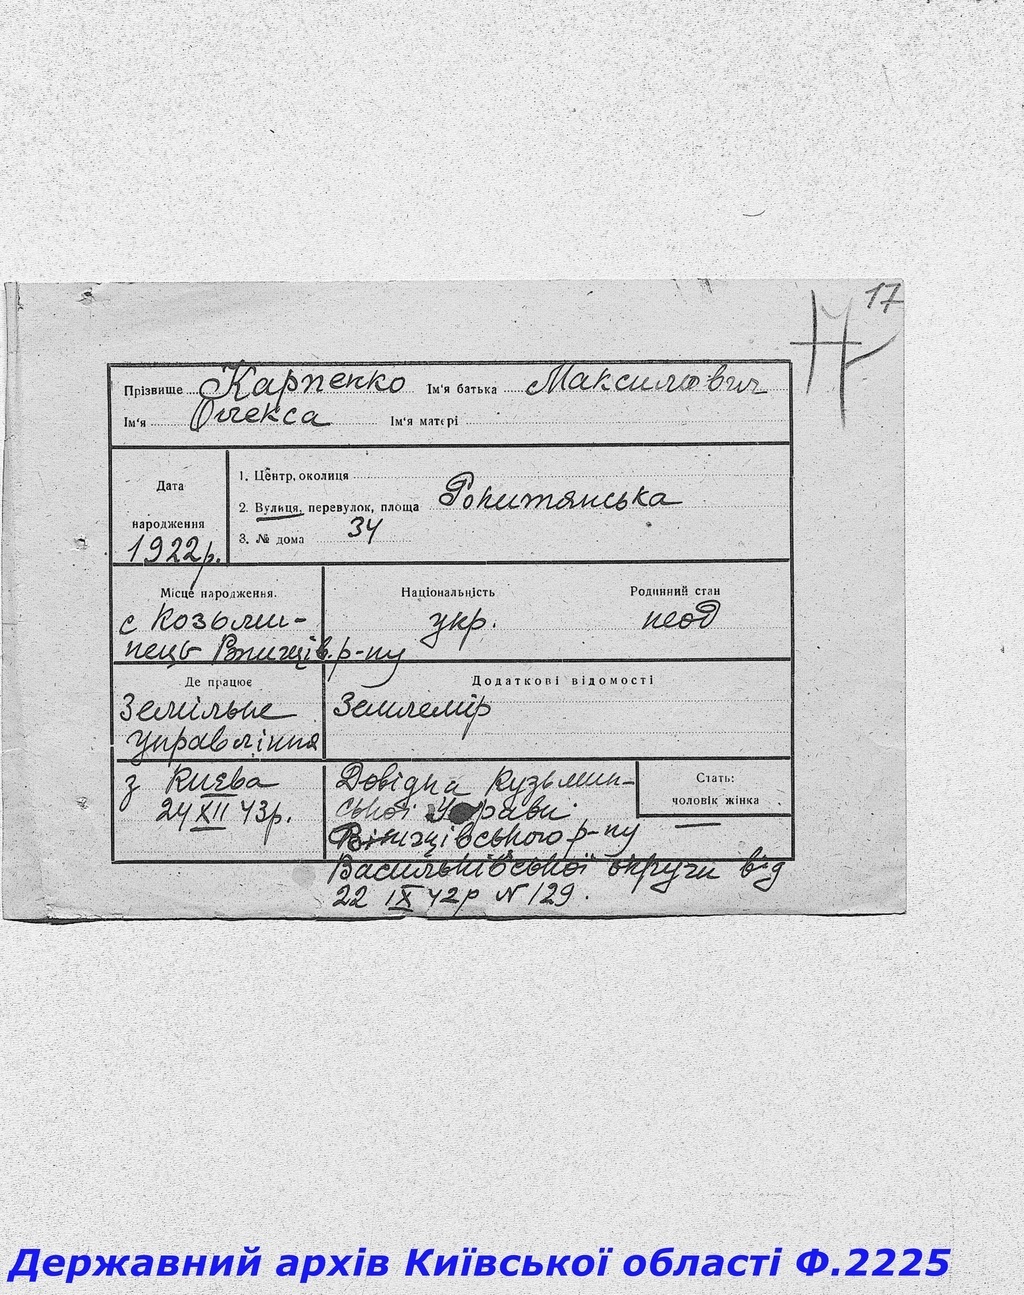 17
Прізвище Карпенко Ім'я батька Максимович
Ім'я Олекса Ім'я матері
Дата
народження
1922р.
1. Центр, околиця
2. Вулиця, перевулок, площа
3. № дома 34
Місце народження.
с Козьми-
нець р-ну
Національність
укр.
Родинний стан
неод
Де працює
Земільне
управління
Додаткові відомості
Землемір
з Києва
24 XII 43р.
Довідка Кузьмин-
ської Управи
р-ну
Васильківської округи від
22 IX 42р N 129.
Стать:
чоловік жінка
Державний архів Київської області Ф.2225